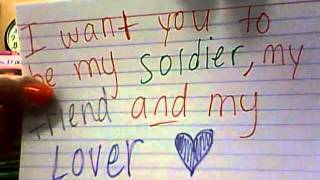 I want you to
be my soldier, my
friend and my
Lover